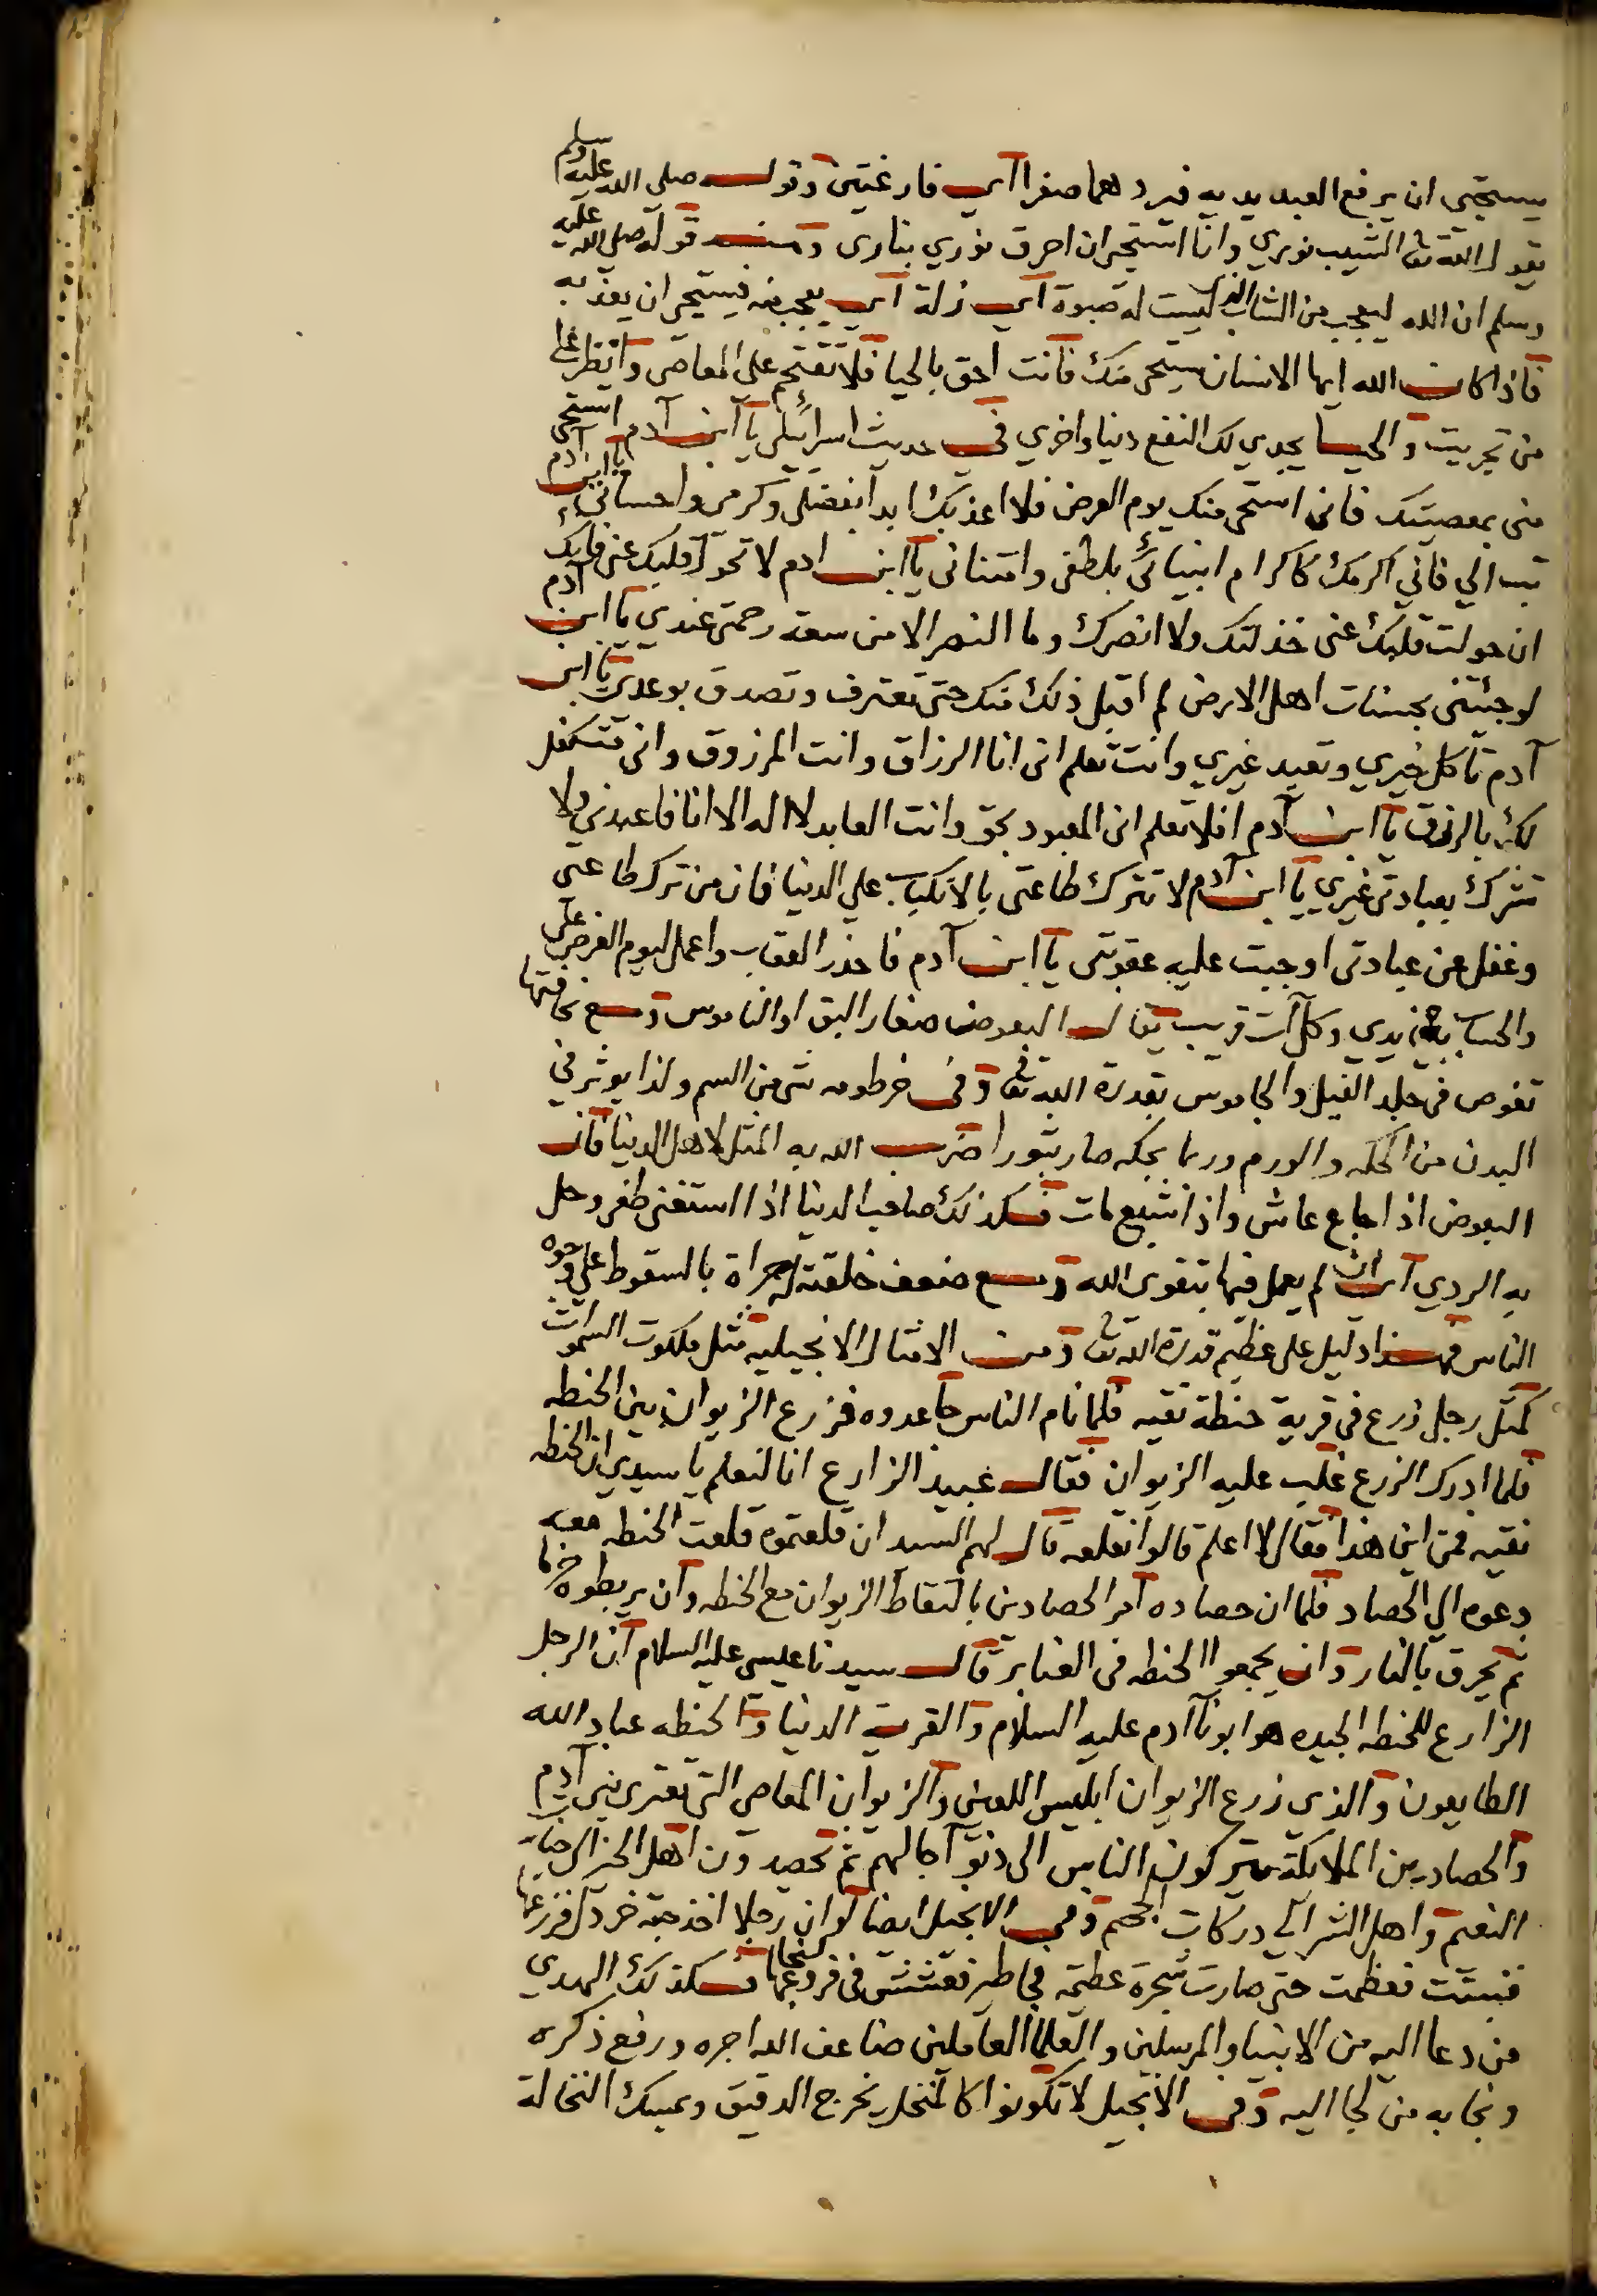 يستحيي ان يرفع العبد يديه فيردهما صفرا اي فارغتين وقوله صلي الله عليه وسلم
يقول الله تعا الشيب نوري وانا استحي ان احرق نوري بناري ومنه قوله صلي الله عليه
وسلم ان الله ليعجب من الشاب الذي ليست له صبوة اي زلة اي يعجب منه فيستحي ان يعذبه
فاذا كان الله ايها الانسان يستحي منك فانت احق بالحيا فلا تقتحم علي المعاصي وانظر علي
من تجريت والحيا يجدي لك النفع دنيا واخري في حديث اسرائيلي يا ابن آدم استحي
مني بمعصيتك فاني استحي منك يوم العرض فلا اعذبك ابدا بفضلي وكرمي واحساني يا ابن ادم
تب الي فاني اكرمك كاكرام انبيائي بلطفي وامتناني يا ابن ادم لا تحول قلبك عني فانك
ان حولت قلبك عني خذلتك ولا انصرك وما النصر الا من سعة رحمتي عندي يا ابن آدم
لو جئتني بحسنات اهل الارض لم اقبل ذلك منك حتي تعترف وتصدق بوعدي يا ابن
آدم تاكل خيري وتعبد غيري وانت تعلم اني انا الرزاق وانت المرزوق واني متكفل
لك بالرزق يا ابن آدم افلا تعلم اني المعبود بحق وانت العابد لا اله الا انا فاعبدني ولا
تشرك بعبادتي غيري يا ابن آدم لا تترك طاعتي بالانكباب علي الدنيا فان من ترك طاعتي
وغفل عن عبادتي اوجبت عليه عقوبتي يا ابن آدم فاحذر العقاب واعمل ليوم العرض علي
والحساب بين يدي وكل آت قريب يقال البعوض صغار البق او الناموس ومع نحافتها
تغوص في جلد الفيل والجاموس بقدرة الله تعا وفي خرطومه شي من السم ولذا يوثر في
البدن من الحكه والورم وربما بحكه صار بثورا ضرب الله به المثل لاهل الدنيا فان
البعوض اذا جاع عاش واذا شبع مات فكذلك صاحب الدنيا اذا استغني طغي وحل
به الردي اي ان لم يعمل فيها بتقوي الله ومع ضعف خلقته له جراة بالسقوط علي وجوه
الناس فهذا دليل علي عظيم قدرة الله تعا ومن الامثال الانجيليه مثل ملكوت السموات
كمثل رجل زرع في قرية حنطة نقيه فلما نام الناس جا عدوه فزرع الزيوان بين الحنطه
فلما ادرك الزرع غلب عليه الزيوان فقال عبيد الزارع انا لنعلم يا سيدي ان الحنطه
نقيه فمن اين هذا فقال لا اعلم قالوا نقلعه قال لهم السيد ان قلعتموه قلعت الحنطه معه
دعوه الي الحصاد فلما ان حصاده امر الحصادين بالتقاط الزيوان مع الحنطه وان يربطوه حزما
ثم يحرق بالنار وان يجمعوا الحنطه في العنابر قال سيدنا عيسي عليه السلام ان الرجل
الزارع للحنطه الجيده هو ابونا آدم عليه السلام والقرية الدنيا والحنطه عباد الله
الطايعون والذي زرع الزيوان ابليس اللعين والزيوان المعاصي التي تعتري بني آدم
والحصادين الملايكة يتركون الناس الي دنو آجالهم ثم يحصدون اهل الخير الي جنات
النعيم واهل الشر الي دركات الجحيم وفي الانجيل ايضا لو ان رجلا اخذ حبة خردل فزرعها
فنبتت فعظمت حتي صارت شجرة عظيمه فجا طير فعشش في فروعها فكذلك الهدي
من دعا اليه من الانبيا والمرسلين والعلما العاملين ضاعف الله اجره ورفع ذكره
ونجا به من لجا اليه وفي الانجيل لا تكونوا كالمنخل يخرج الدقيق ويمسك النخالة